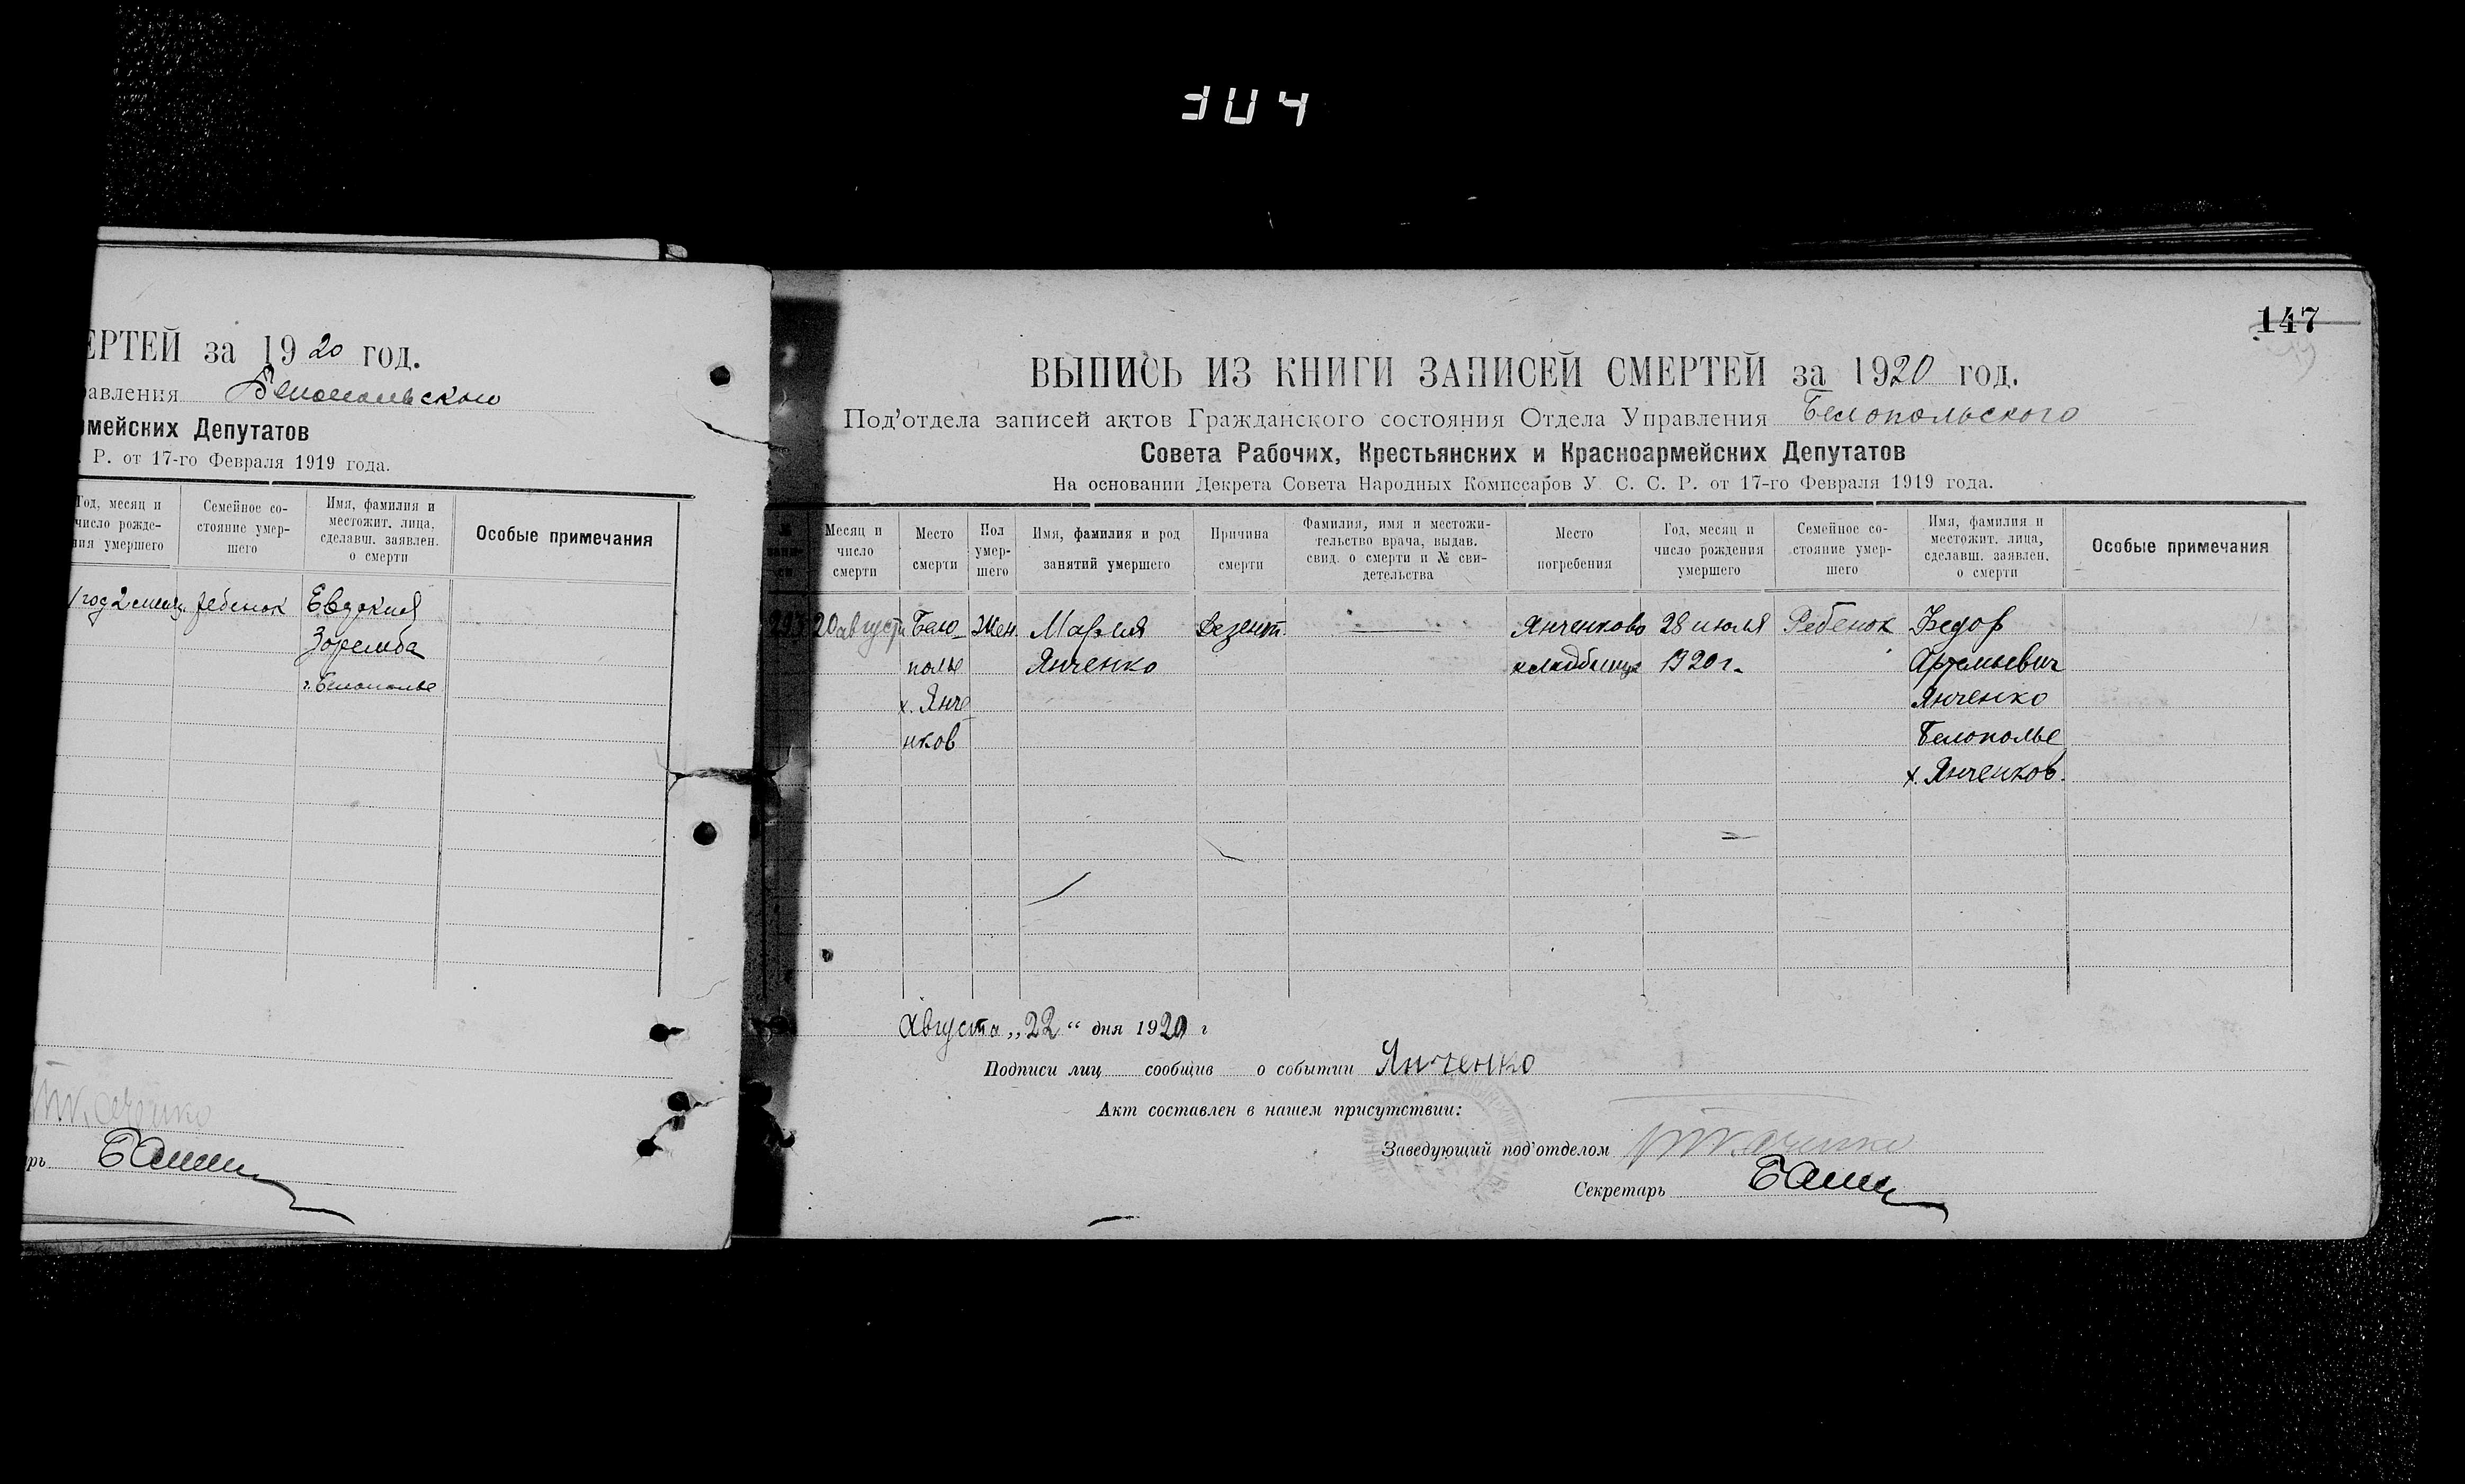 304
ЕРТЕЙ за 1920 год.
авления Белопольского
рмейских Депутатов
. Р. от 17-го Февраля 1919 года.
Год, месяц и число рождения умершего
Семейное состояние умершего
Имя, фамилия и местожит. лица, сделавш. заявлен. о смерти
Особые примечания
1 год 2 месяц. ребенок Евдокия
Зоремба
г. Белополье
рь
147
ВЫПИСЬ ИЗ КНИГИ ЗАПИСЕЙ СМЕРТЕЙ за 1920 год.
Под'отдела записей актов Гражданского состояния Отдела Управления Белопольского
Совета Рабочих, Крестьянских и Красноармейских Депутатов
На основании Декрета Совета Народных Комиссаров У. С. С. Р. от 17-го Февраля 1919 года.
№ записи
Месяц и число смерти
Место смерти
Пол умершего
Имя, фамилия и род занятий умершего
Причина смерти
Фамилия, имя и местожительство врача, выдав. свид. о смерти и № свидетельства
Место погребения
Год, месяц и число рождения умершего
Семейное состояние умершего
Имя, фамилия и местожит. лица, сделавш. заявлен. о смерти
Особые примечания
293 20 августа Бело- Жен. Мария Дезент. Янченково 28 июля Ребенок Федор
полье Янченко кладбище 1920 г. Артемьевич
х. Янче Янченко
нков Белополье
х. Янченков.
Августа „22“ дня 1920 г
Подписи лиц сообщив о событии Янченко
Акт составлен в нашем присутствии:
Заведующий под'отделом
Секретарь